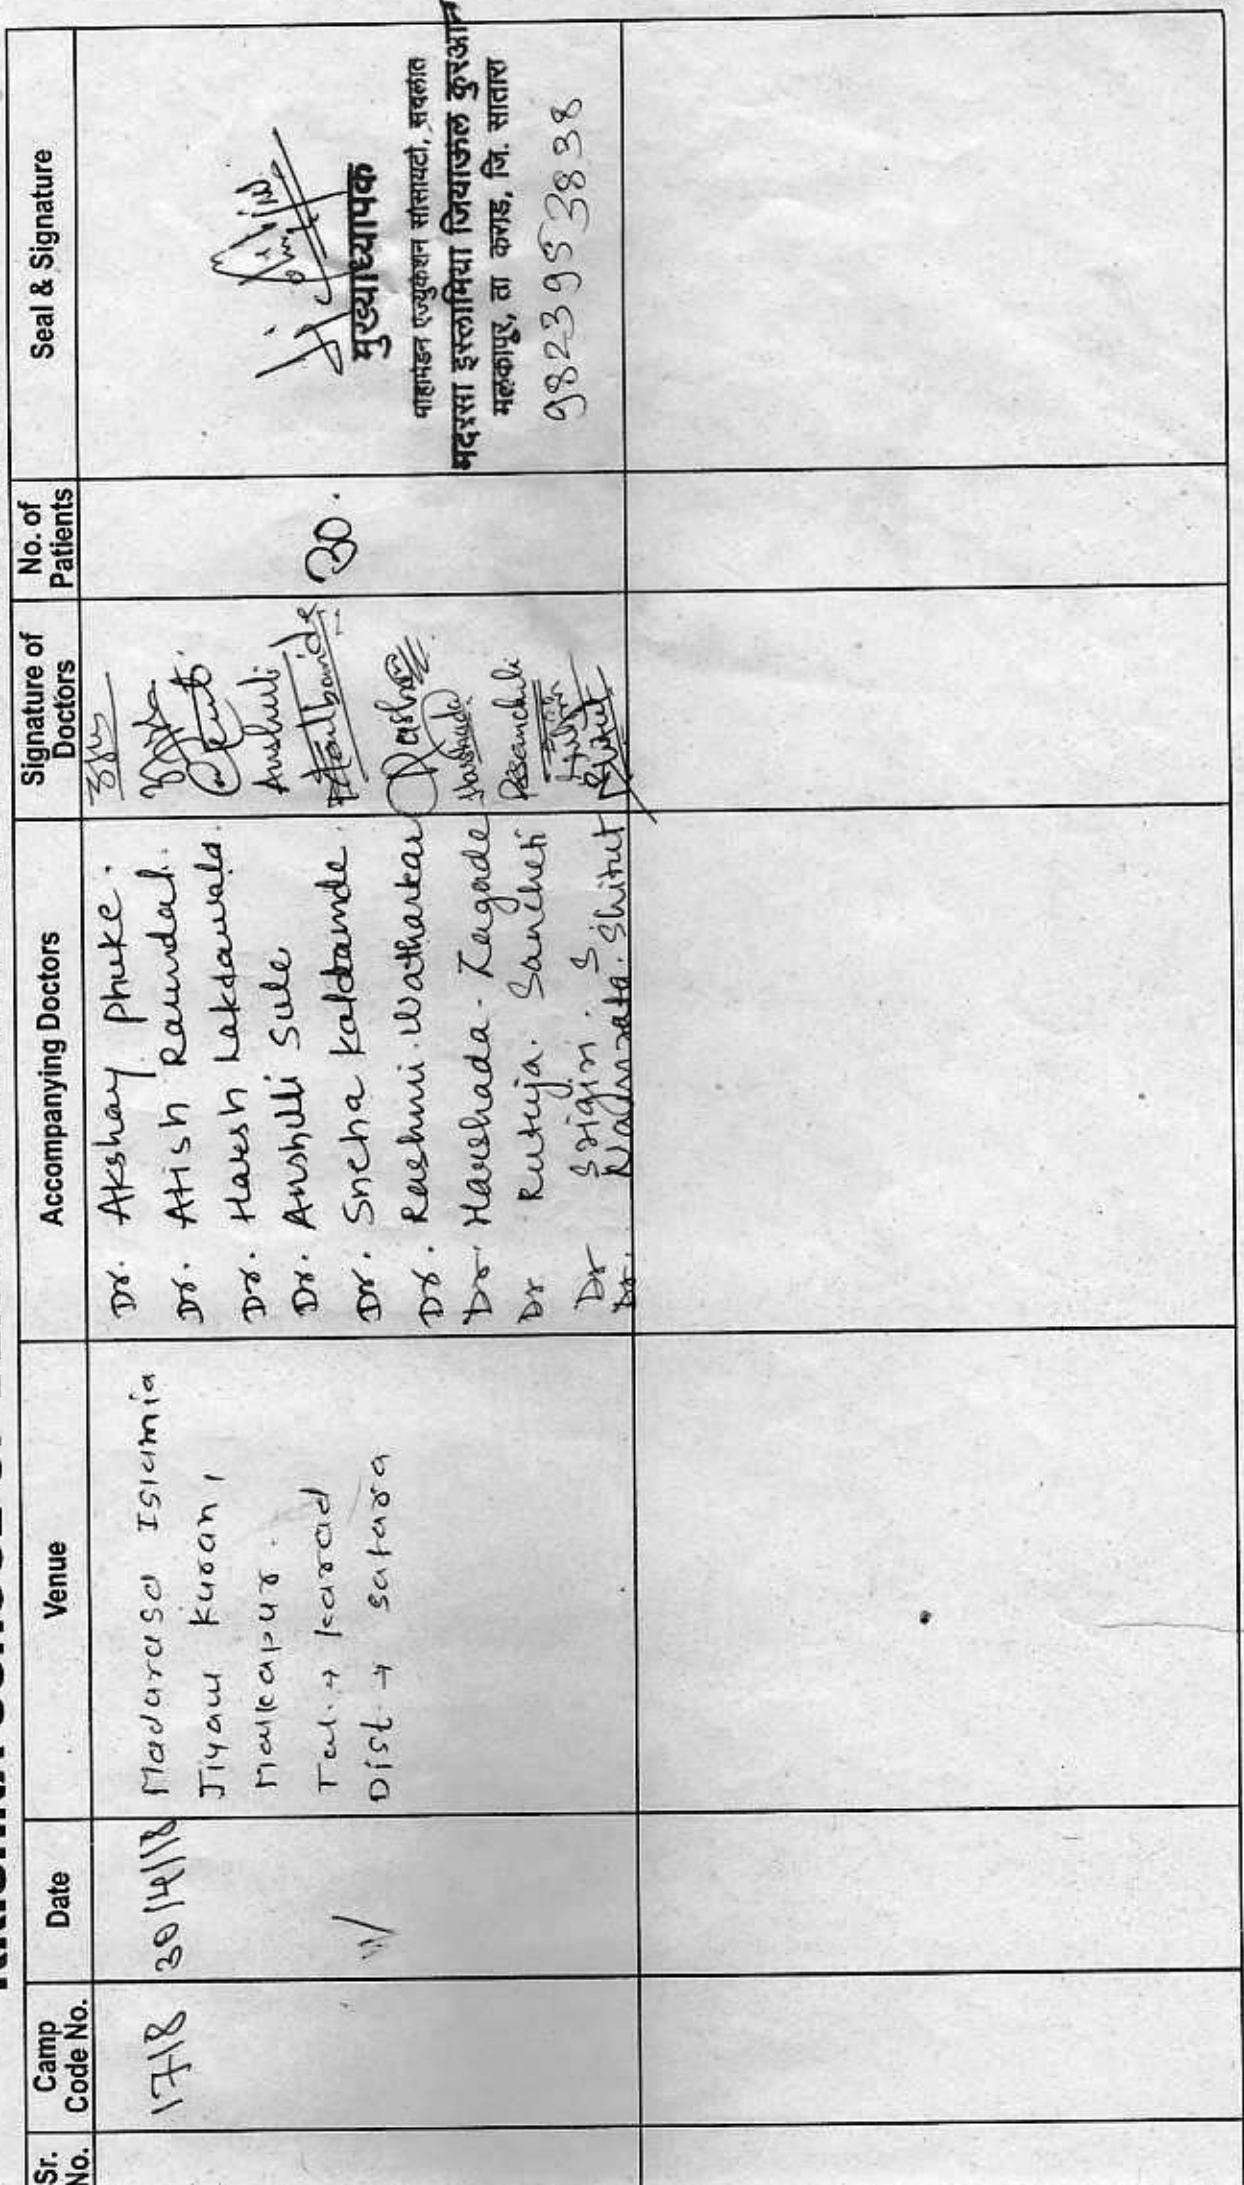 Sr. No.
Camp Code No.
Date
Venue
Accompanying Doctors
Signature of Doctors
No. of Patients
Seal & Signature
1718
30/4/18
Madarasa Islamia
Jiyaul Kuran,
Malkapur.
Tal. → Karad
Dist → Satara
Dr. Akshay Phuke.
Dr. Atish Raundal.
Dr. Harsh Lakdawala.
Dr. Anshuli Sule
Dr. Sneha Kaldamde.
Dr. Rashmi. Watharkar
Dr. Harshada. Zagade
Dr Rutuja. Sancheti
Dr Srigiri. S
Dr. Namrata. Shitut
Anshuli
Rashmi
Harshada
RSancheti
30.
मुख्याध्यापक
मोहामेडन एज्युकेशन सोसायटी, संचलीत
मदरसा इस्लामिया जियाउल कुरआन
मलकापुर, ता कराड, जि. सातारा
9823953838